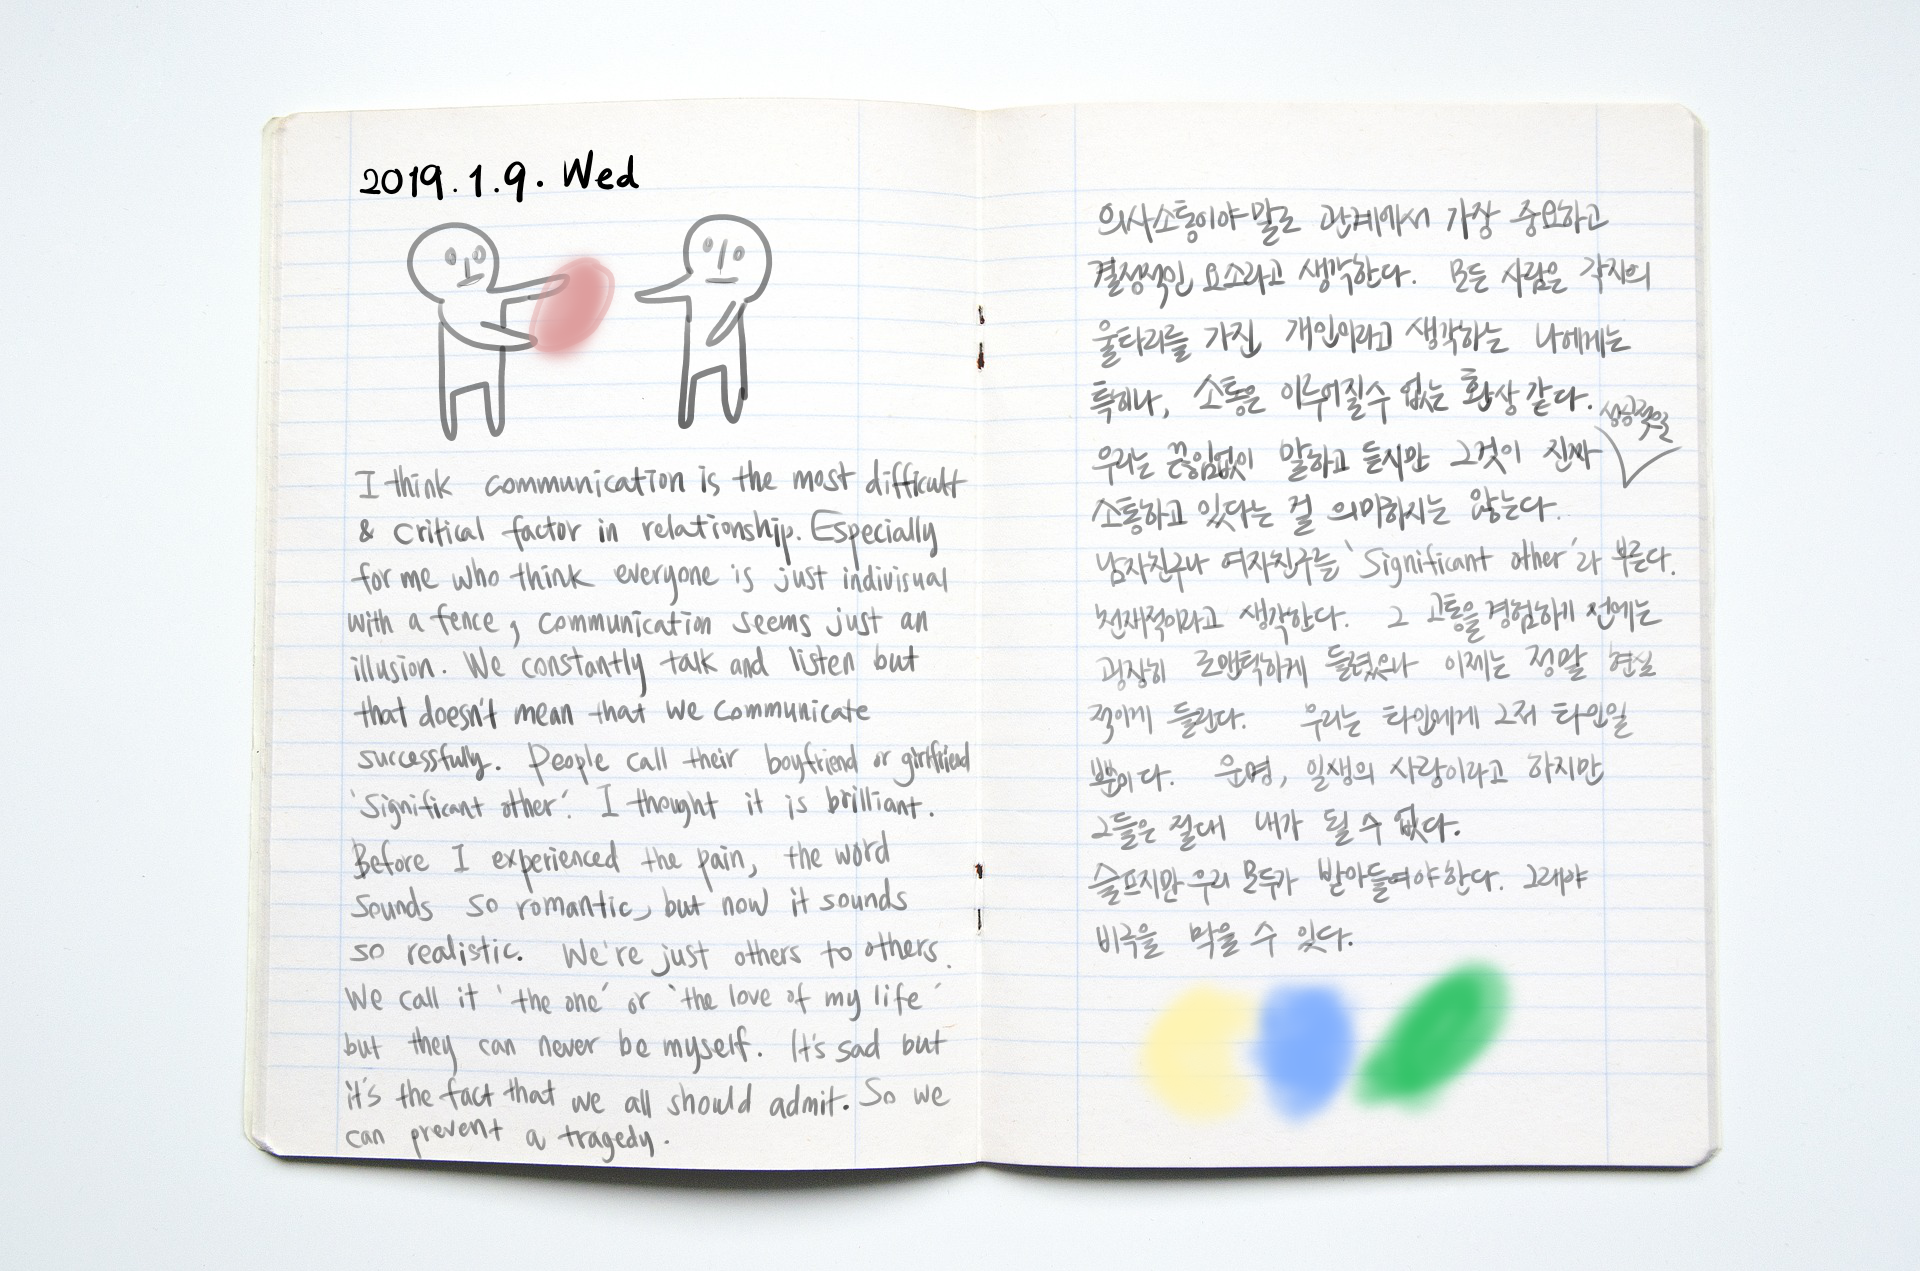 2019.1.9. Wed
I think communication is the most difficult
& critical factor in relationship. Especially
for me who think everyone is just indivisual
with a fence, communication seems just an
illusion. We constantly talk and listen but
that doesn't mean that we communicate
successfully. People call their boyfriend or girlfriend
'Significant other'. I thought it is brilliant.
Before I experienced the pain, the word
sounds so romantic, but now it sounds
so realistic. We're just others to others.
We call it 'the one' or 'the love of my life'
but they can never be myself. It's sad but
it's the fact that we all should admit. So we
can prevent a tragedy.
의사소통이야 말로 관계에서 가장 중요하고
결정적인 요소라고 생각한다. 모든 사람은 각자의
울타리를 가진 개인이라고 생각하는 나에게는
특히나, 소통은 이루어질수 없는 환상 같다.
성공적으로
우리는 끊임없이 말하고 듣지만 그것이 진짜
소통하고 있다는 걸 의미하지는 않는다.
남자친구나 여자친구를 'Significant other'라 부른다.
천재적이라고 생각한다. 그 고통을 경험하기 전에는
굉장히 로맨틱하게 들렸으나 이제는 정말 현실
적이게 들린다. 우리는 타인에게 그저 타인일
뿐이다. 운명, 일생의 사랑이라고 하지만
그들은 절대 내가 될 수 없다.
슬프지만 우리 모두가 받아들여야한다. 그래야
비극을 막을 수 있다.